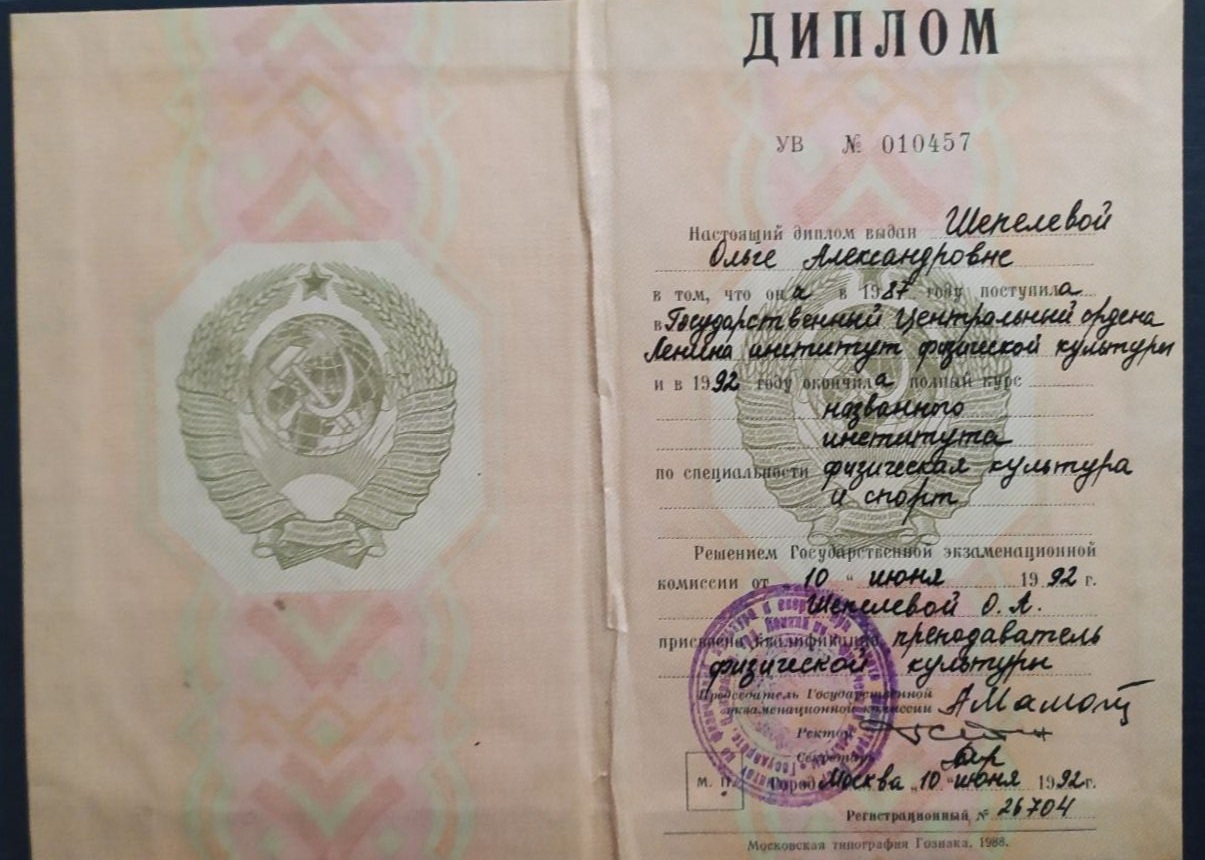 ДИПЛОМ
УВ № 010457
Настоящий диплом выдан Шепелевой
Ольге Александровне
в том, что она в 1987 году поступила
в Государственный Центральный ордена
Ленина институт физической культуры
и в 1992 году окончила полный курс
названного
института
по специальности физическая культура
и спорт
Решением Государственной экзаменационной
комиссии от „10“ июня 1992 г.
Шепелевой О. А.
присвоена квалификация преподаватель
физической культуры
Председатель Государственной
экзаменационной комиссии
Ректор
Секретарь
М. П. Город Москва „10“ июня 1992 г.
Регистрационный № 26704
Московская типография Гознака. 1988.